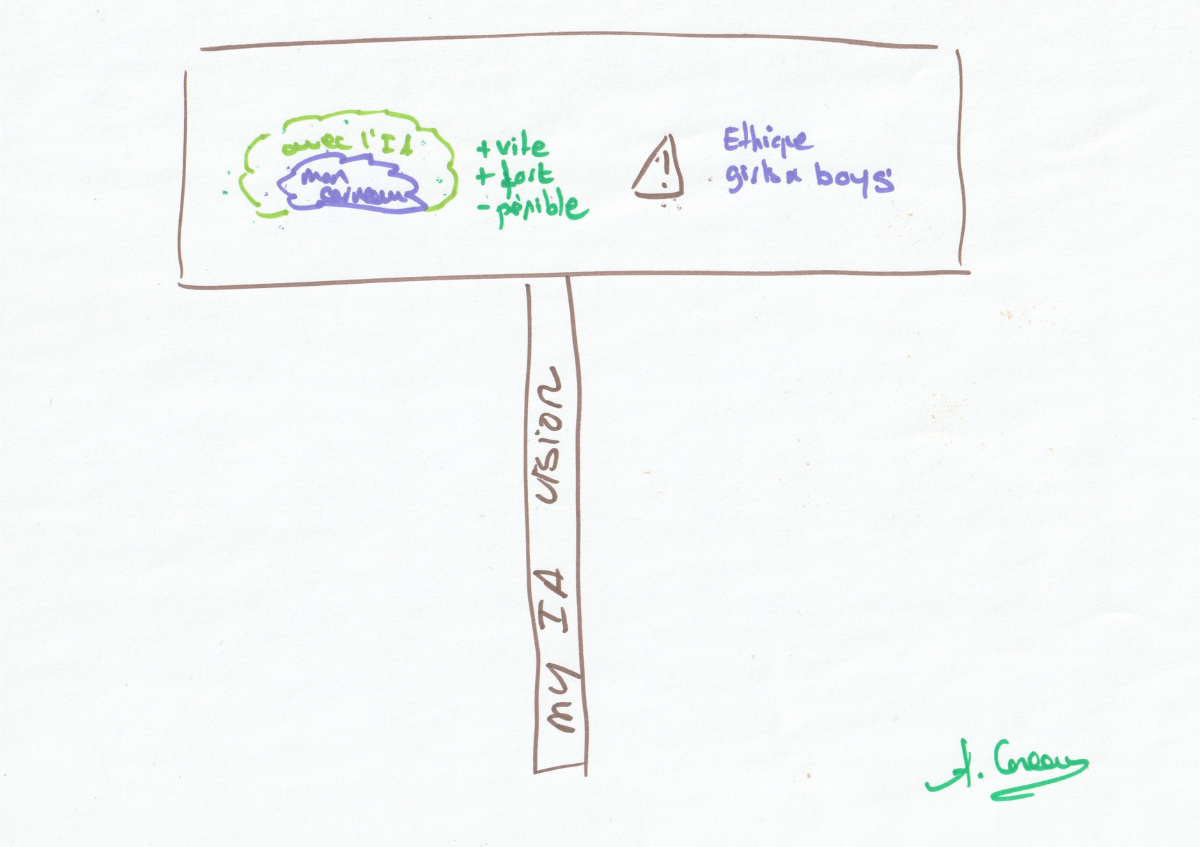 avec l'IA
mon
cerveau
+ vite
+ fort
- pénible
!
Ethique
girls & boys
my IA vision